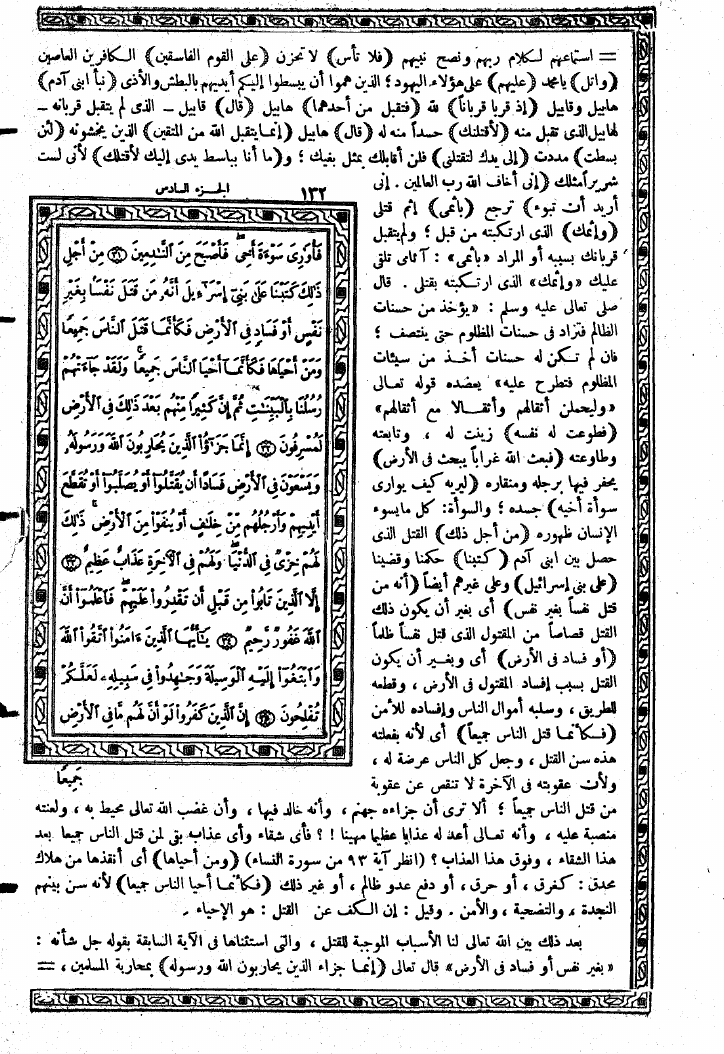 = استماعهم لكلام ربهم ونصح نبيهم (فلا تأس) لا تحزن (على القوم الفاسقين) الكافرين العاصين
(واتل) يا محمد (عليهم) على هؤلاء اليهود؛ الذين هموا أن يبسطوا إليكم أيديهم بالبطش والأذى (نبأ ابنى آدم)
هابيل وقابيل (إذ قربا قرباناً) لله (فتقبل من أحدهما) هابيل (قال) قابيل ــ الذى لم يتقبل قربانه ــ
لهابيل الذى تقبل منه (لأقتلنك) حسداً منه له (قال) هابيل (إنما يتقبل الله من المتقين) الذين يخشونه (لئن
بسطت) مددت (إلى يدك لتقتلنى) فلن أقابلك بمثل بغيك؛ و(ما أنا بباسط يدى إليك لأقتلك) لأنى لست
شريراً مثلك (إنى أخاف الله رب العالمين . إنى
أريد أن تبوء) ترجع (بإثمى) إثم قتلى
(وإثمك) الذى ارتكبته من قبل؛ ولم يتقبل
قربانك بسببه أو المراد «بإثمى» : آثامى تلقى
عليك «وإثمك» الذى ارتكبته بقتلى . قال
صلى تعالى عليه وسلم : «يؤخذ من حسنات
الظالم فتزاد فى حسنات المظلوم حتى ينتصف ؛
فان لم تكن له حسنات أخذ من سيئات
المظلوم فتطرح عليه» يعضده قوله تعالى
«وليحملن أثقالهم وأثقالا مع أثقالهم»
(فطوعت له نفسه) زينت له ، وتابعته
وطاوعته (فبعث الله غراباً يبحث فى الأرض)
يحفر فيها برجله ومنقاره (ليريه كيف يوارى
سوأة أخيه) جسده ؛ والسوأة: كل ما يسوء
الإنسان ظهوره (من أجل ذلك) القتل الذى
حصل بين ابنى آدم (كتبنا) حكمنا وقضينا
(على بنى إسرائيل) وعلى غيرهم أيضاً (أنه من
قتل نفساً بغير نفس) أى بغير أن يكون ذلك
القتل قصاصاً من المقتول الذى قتل نفساً ظلماً
(أو فساد فى الأرض) أى وبغير أن يكون
القتل بسبب إفساد المقتول فى الأرض ، وقطعه
للطريق ، وسلبه أموال الناس وإفساده للأمن
(فكأنما قتل الناس جميعاً) أى لأنه بفعلته
هذه سن القتل ، وجعل كل الناس عرضة له ،
ولأن عقوبته فى الآخرة لا تنقص عن عقوبة
من قتل الناس جميعاً ؛ ألا ترى أن جزاءه جهنم ، وأنه خالد فيها ، وأن غضب الله تعالى محيط به ، ولعنته
منصبة عليه ، وأنه تعالى أعد له عذابا عظيما مهينا ! ؟ فأى شقاء وأى عذاب بقى لمن قتل الناس جميعا بعد
هذا الشقاء ، وفوق هذا العذاب ؟ (انظر آية ٩٣ من سورة النساء) (ومن أحياها) أى أنقذها من هلاك
محدق : كغرق ، أو حرق ، أو دفع عدو ظالم ، أو غير ذلك (فكأنما أحيا الناس جميعا) لأنه سن بينهم
النجدة ، والتضحية ، والأمن . وقيل : إن الكف عن القتل : هو الإحياء .
بعد ذلك بين الله تعالى لنا الأسباب الموجبة للقتل ، والتى استثناها فى الآية السابقة بقوله جل شأنه :
«بغير نفس أو فساد فى الأرض» قال تعالى (إنما جزاء الذين يحاربون الله ورسوله) بمحاربة المسلمين ، =
١٣٢ الجزء السادس
فَأُوَٰرِيَ سَوْءَةَ أَخِى فَأَصْبَحَ مِنَ ٱلنَّٰدِمِينَ ٣١ مِنْ أَجْلِ
ذَٰلِكَ كَتَبْنَا عَلَىٰ بَنِىٓ إِسْرَٰٓءِيلَ أَنَّهُۥ مَن قَتَلَ نَفْسًۢا بِغَيْرِ
نَفْسٍ أَوْ فَسَادٍ فِى ٱلْأَرْضِ فَكَأَنَّمَا قَتَلَ ٱلنَّاسَ جَمِيعًا
وَمَنْ أَحْيَاهَا فَكَأَنَّمَآ أَحْيَا ٱلنَّاسَ جَمِيعًا وَلَقَدْ جَآءَتْهُمْ
رُسُلُنَا بِٱلْبَيِّنَٰتِ ثُمَّ إِنَّ كَثِيرًا مِّنْهُم بَعْدَ ذَٰلِكَ فِى ٱلْأَرْضِ
لَمُسْرِفُونَ ٣٢ إِنَّمَا جَزَٰٓؤُا۟ ٱلَّذِينَ يُحَارِبُونَ ٱللَّهَ وَرَسُولَهُۥ
وَيَسْعَوْنَ فِى ٱلْأَرْضِ فَسَادًا أَن يُقَتَّلُوٓا۟ أَوْ يُصَلَّبُوٓا۟ أَوْ تُقَطَّعَ
أَيْدِيهِمْ وَأَرْجُلُهُم مِّنْ خِلَٰفٍ أَوْ يُنفَوْا۟ مِنَ ٱلْأَرْضِ ذَٰلِكَ
لَهُمْ خِزْىٌ فِى ٱلدُّنْيَا وَلَهُمْ فِى ٱلْءَاخِرَةِ عَذَابٌ عَظِيمٌ ٣٣
إِلَّا ٱلَّذِينَ تَابُوا۟ مِن قَبْلِ أَن تَقْدِرُوا۟ عَلَيْهِمْ فَٱعْلَمُوٓا۟ أَنَّ
ٱللَّهَ غَفُورٌ رَّحِيمٌ ٣٤ يَٰٓأَيُّهَا ٱلَّذِينَ ءَامَنُوا۟ ٱتَّقُوا۟ ٱللَّهَ
وَٱبْتَغُوٓا۟ إِلَيْهِ ٱلْوَسِيلَةَ وَجَٰهِدُوا۟ فِى سَبِيلِهِۦ لَعَلَّكُمْ
تُفْلِحُونَ ٣٥ إِنَّ ٱلَّذِينَ كَفَرُوا۟ لَوْ أَنَّ لَهُم مَّا فِى ٱلْأَرْضِ
جَمِيعًا